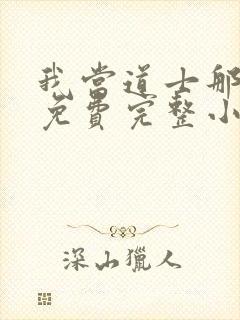 我当道士那
免费完整小
深山猎人